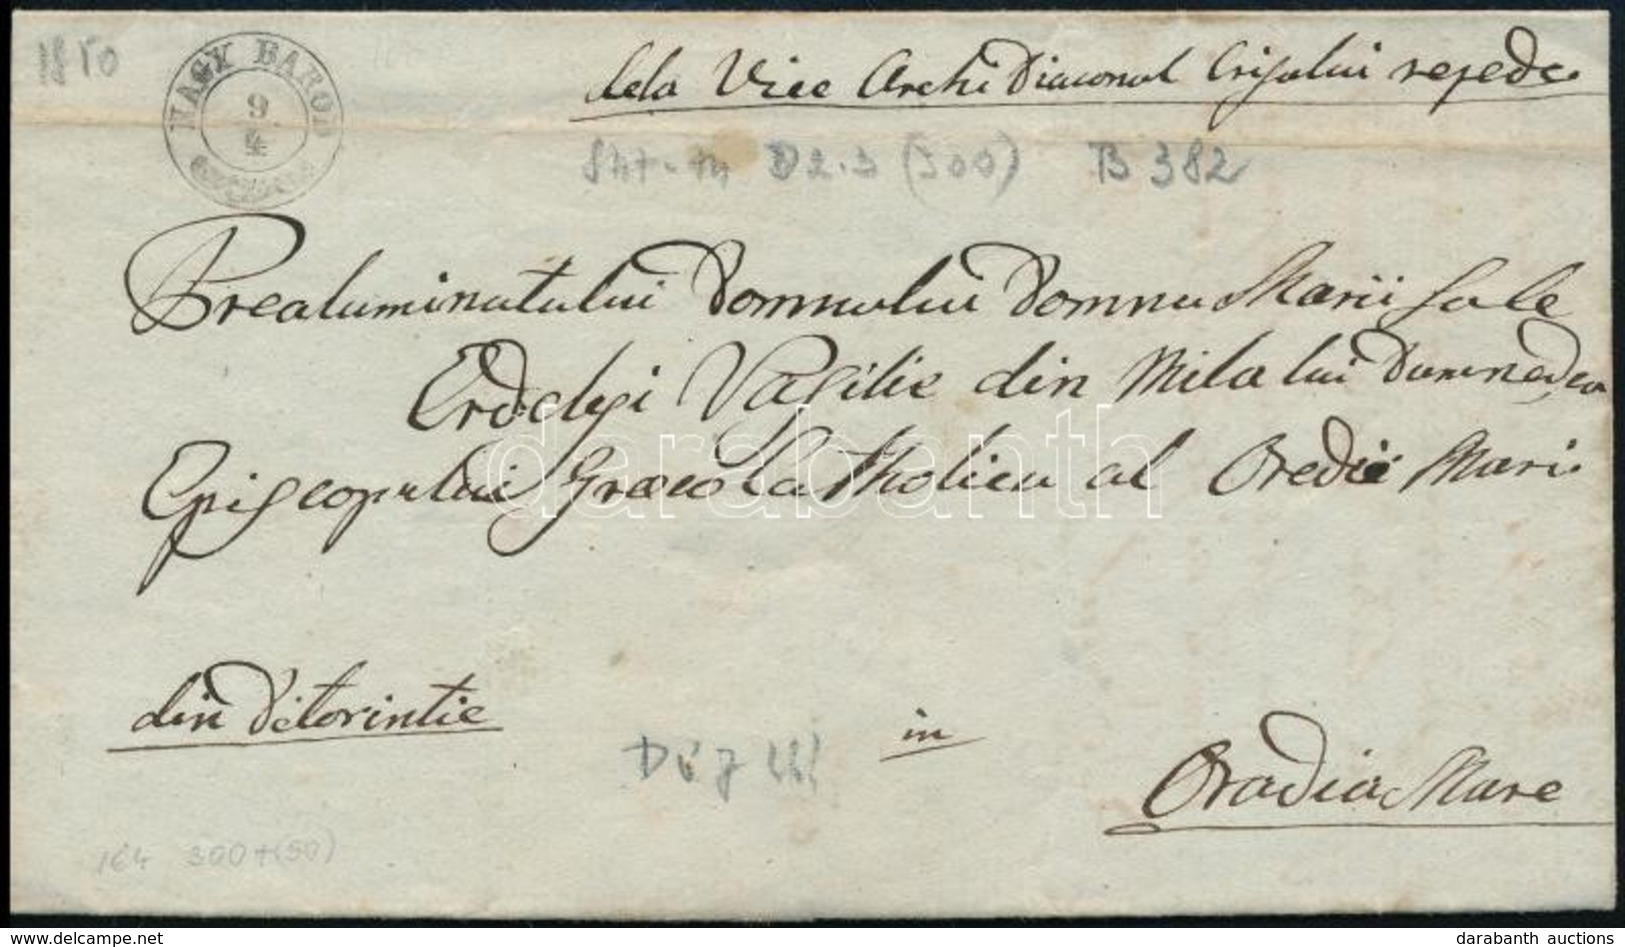 1850
NAGY BAROD
9
4
dela Vice Archi Diaconul Crisului repede
D2.3 (300) B 382
Prealuminatului Domnului Domnu Marii sale
Erdelyi Vasilie din Mila lui Dumnedeu
Episcopului Graeco Catholicu al Oredii Mari
darabanth
din Détorintie
in
Oradia Mare
164 300+(50)
darabanth auctions